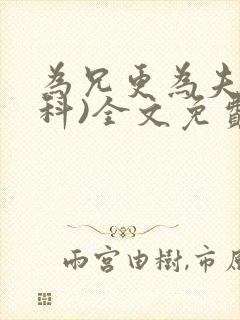 為兄更為夫
科)全文免費
雨宮由樹,市原